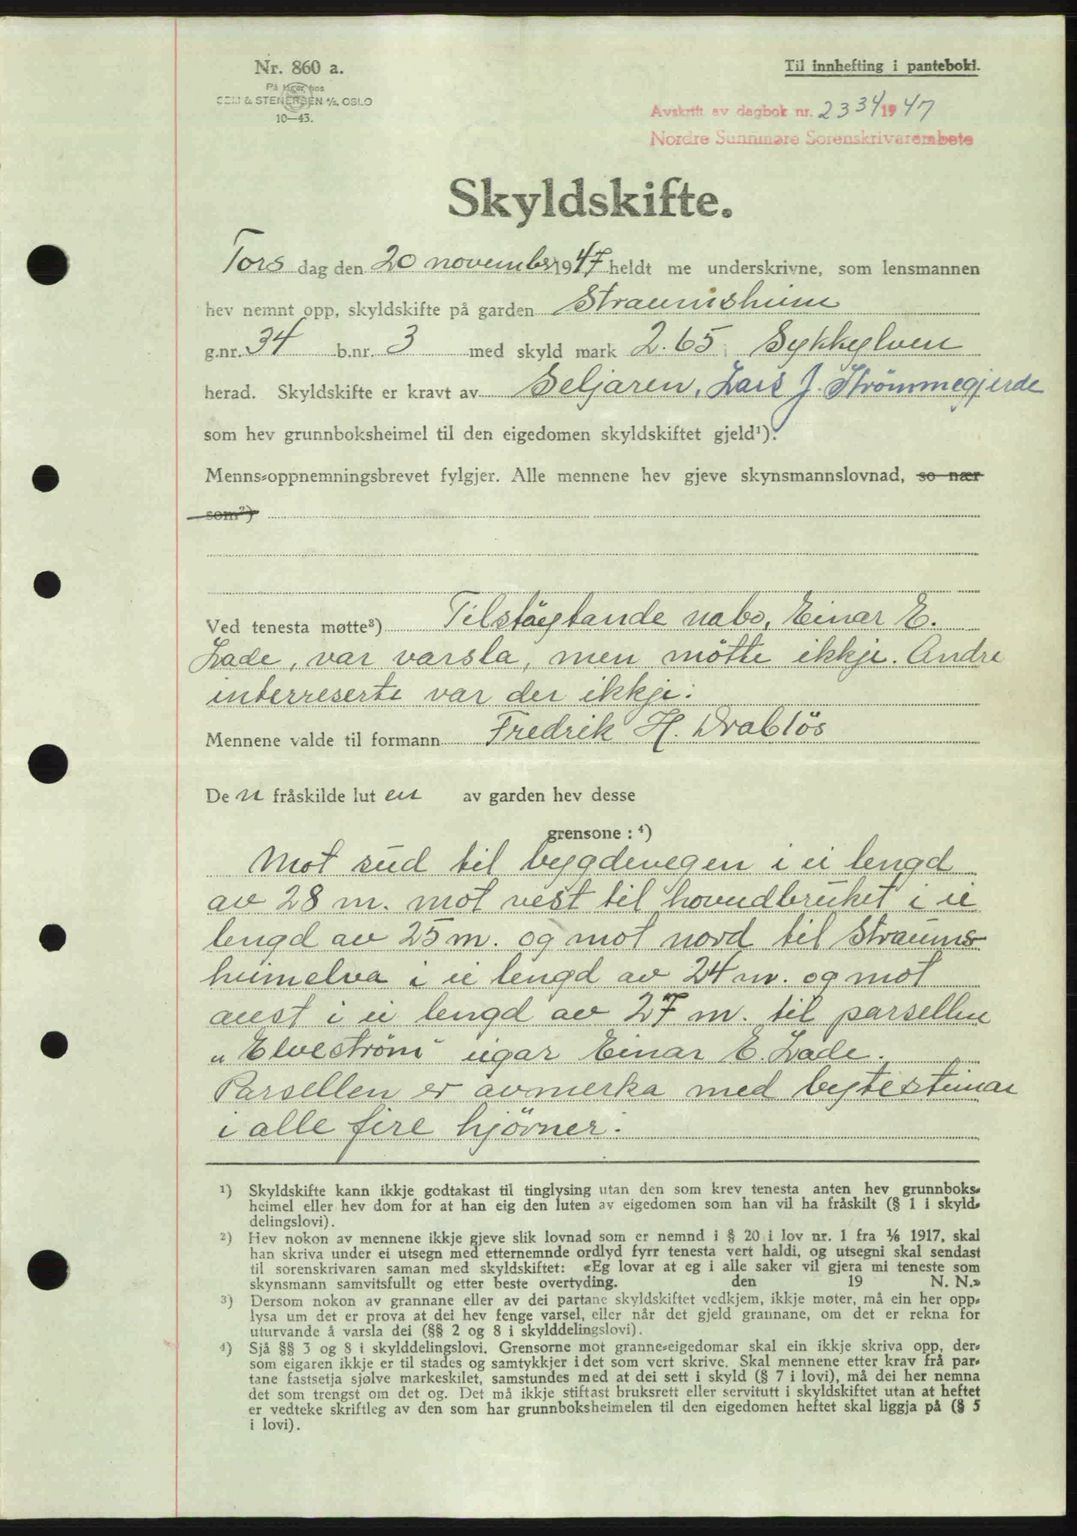 Nr. 860 a.
Til innhefting i panteboki.
På lager hos
SEM & STENERSEN A/S, OSLO
10—43.
Avskrift av dagbok nr. 2334 1947
Nordre Sunnmøre Sorenskrivarembete
Skyldskifte.
Torsdag den 20 november 1947 heldt me underskrivne, som lensmannen
hev nemnt opp, skyldskifte på garden Straumsheim
g.nr. 34 b.nr. 3 med skyld mark 2.65 Sykkylven
herad. Skyldskifte er kravt av Seljaren, Lars J. Strømmegjerde
som hev grunnboksheimel til den eigedomen skyldskiftet gjeld¹).
Menns=oppnemningsbrevet fylgjer. Alle mennene hev gjeve skynsmannslovnad, so nær
som²)
Ved tenesta møtte³) Tilstøytande nabo, Einar E.
Lade, var varsla, men møtte ikkje. Andre
interreserte var der ikkje.
Mennene valde til formann Fredrik H. Drabløs
De n fråskilde lut en av garden hev desse
grensone : ⁴)
Mot sud til bygdevegen i ei lengd
av 28 m. mot vest til hovudbruket i ei
lengd av 25 m. og mot nord til Straums-
heimelva i ei lengd av 24 m. og mot
aust i ei lengd av 27 m. til parsellen
„Elvestrøm" eigar Einar E. Lade.
Parsellen er avmerka med bytesteinar
i alle fire hjørner.
¹) Skyldskifte kann ikkje godtakast til tinglysing utan den som krev tenesta anten hev grunnboks=
heimel eller hev dom for at han eig den luten av eigedomen som han vil ha fråskilt (§ 1 i skyld=
delingslovi).
²) Hev nokon av mennene ikkje gjeve slik lovnad som er nemnd i § 20 i lov nr. 1 fra ⅛ 1917, skal
han skriva under ei utsegn med etternemnde ordlyd fyrr tenesta vert haldi, og utsegni skal sendast
til sorenskrivaren saman med skyldskiftet: «Eg lovar at eg i alle saker vil gjera mi teneste som
skynsmann samvitsfullt og etter beste overtyding. den 19 N. N.»
³) Dersom nokon av grannane eller av dei partane skyldskiftet vedkjem, ikkje møter, må ein her opp=
lysa um det er prova at dei hev fenge varsel, eller når det gjeld grannane, om det er rekna for
uturvande å varsla dei (§§ 2 og 8 i skylddelingslovi).
⁴) Sjå §§ 3 og 8 i skylddelingslovi. Grensorne mot granne=eigedomar skal ein ikkje skriva opp, der=
som eigaren ikkje er til stades og samtykkjer i det som vert skrive. Skal mennene etter krav frå par=
tane fastsetja sjølve markeskilet, samstundes med at dei sett i skyld (§ 7 i lovi), må dei her nemna
det som trengst om det og. Det må ikkje stiftast bruksrett eller servitutt i skyldskiftet utan at heftet
er vedteke skriftleg av den som har grunnboksheimelen til den eigedomen heftet skal liggja på (§ 5
i lovi).